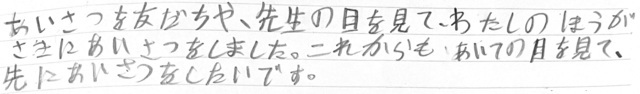 あいさつを友だちや、先生の目を見て、わたしのほうが
さきにあいさつをしました。これからも、あいての目を見て、
先にあいさつをしたいです。